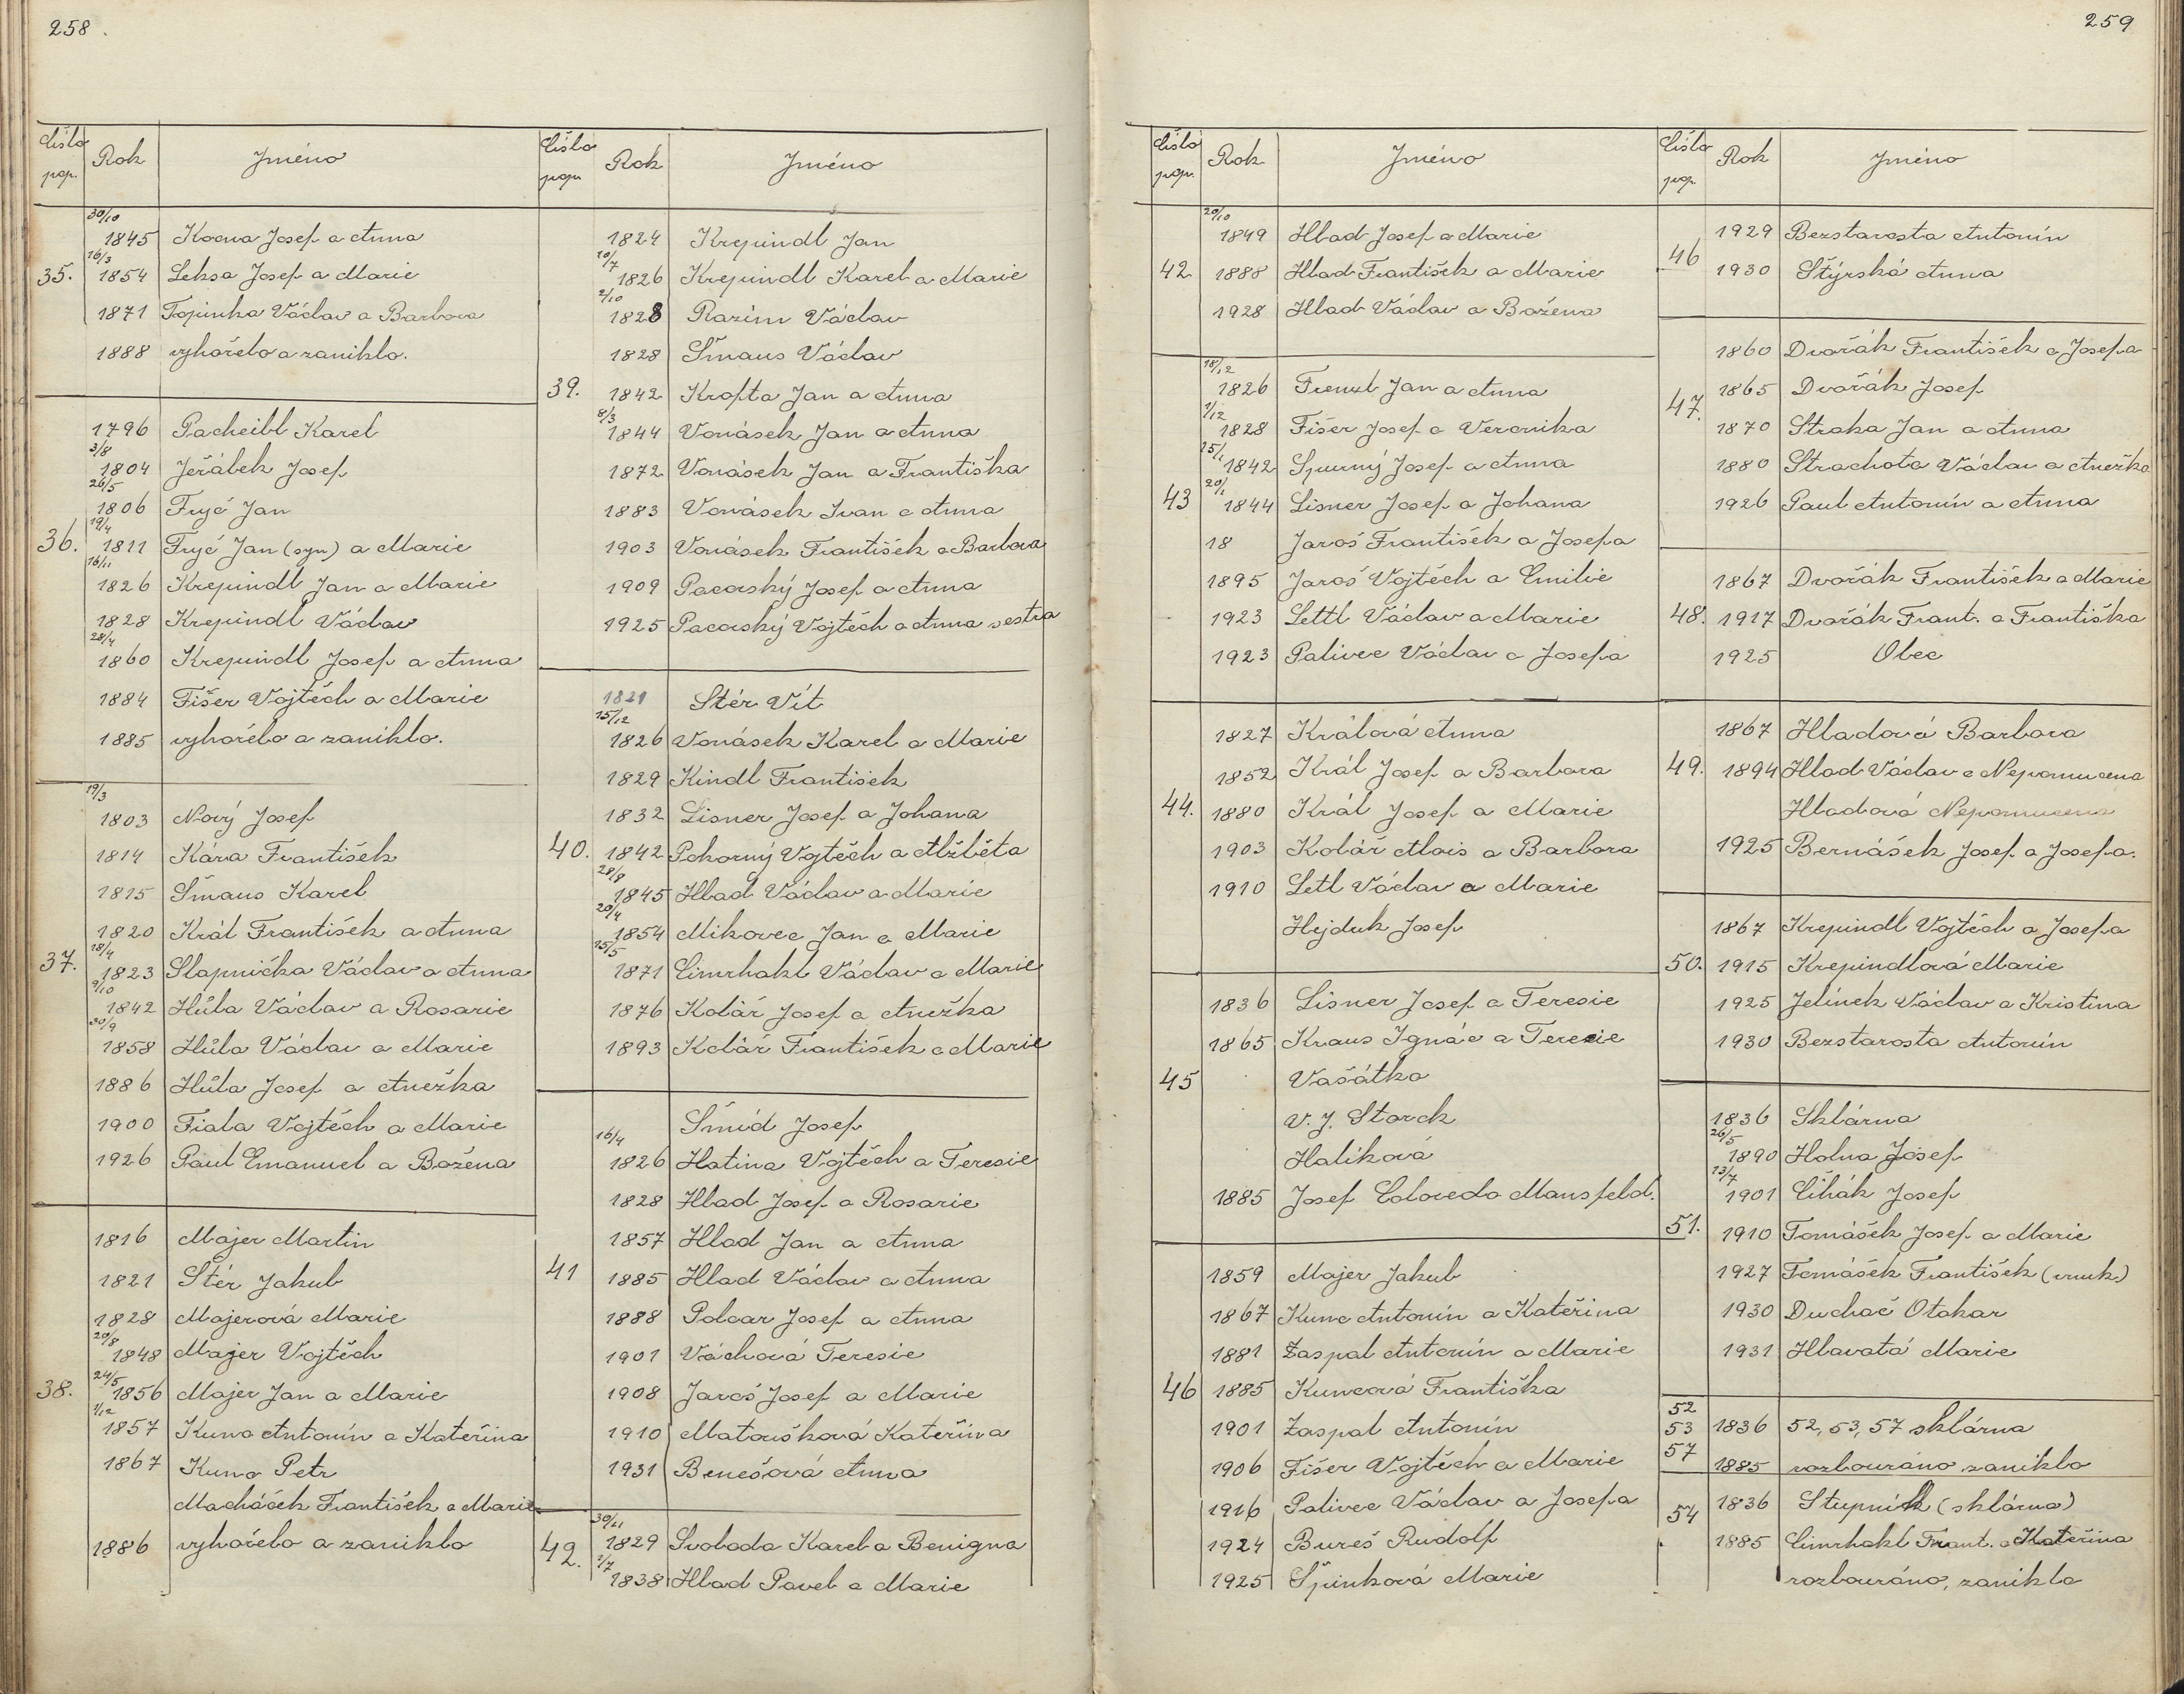 258.
Číslo pop. Rok Jméno
30/10 1845 Kocna Josef a Anna
35. 16/3 1854 Leksa Josef a Marie
1871 Topinka Václav a Barbora
1888 vyhořelo a zaniklo.
1796 Pacheibl Karel
3/8 1804 Jeřábek Josef
26/5 1806 Fryč Jan
36. 19/4 1811 Fryč Jan (syn) a Marie
16/11 1826 Krepindl Jan a Marie
1828 Krepindl Václav
28/4 1860 Krepindl Josef a Anna
1884 Fišer Vojtěch a Marie
1885 vyhořelo a zaniklo.
19/3 1803 Nový Josef
1814 Kára František
1815 Šmaus Karel
1820 Král František a Anna
37. 18/4 1823 Slapnička Václav a Anna
9/10 1842 Hůla Václav a Rosarie
30/9 1858 Hůla Václav a Marie
1886 Hůla Josef a Anežka
1900 Fiala Vojtěch a Marie
1926 Paul Emanuel a Božena
1816 Majer Martin
1821 Stér Jakub
1828 Majerová Marie
20/8 1848 Majer Vojtěch
38. 24/5 1856 Majer Jan a Marie
1/12 1857 Kunc Antonín a Kateřina
1867 Kunc Petr
Macháček František a Marie
1886 vyhořelo a zaniklo
Číslo pop. Rok Jméno
1824 Krepindl Jan
10/7 1826 Krepindl Karel a Marie
2/10 1828 Razím Václav
1828 Šmaus Václav
39. 1842 Krofta Jan a Anna
8/3 1844 Vonásek Jan a Anna
1872 Vonásek Jan a Františka
1883 Vonásek Ivan a Anna
1903 Vonásek František a Barbora
1909 Pacovský Josef a Anna
1925 Pacovský Vojtěch a Anna sestra
1821 Stér Vít
15/12 1826 Vonásek Karel a Marie
1829 Kindl František
1832 Lisner Josef a Johana
40. 1842 Pokorný Vojtěch a Alžběta
28/8 1845 Hlad Václav a Marie
20/4 1854 Mikovec Jan a Marie
15/5 1871 Cimrhakl Václav a Marie
1876 Kolář Josef a Anežka
1893 Kolář František a Marie
Šmíd Josef
16/4 1826 Hatina Vojtěch a Teresie
1828 Hlad Josef a Rosarie
1857 Hlad Jan a Anna
41 1885 Hlad Václav a Anna
1888 Polcar Josef a Anna
1901 Váchová Teresie
1908 Jaroš Josef a Marie
1910 Matoušková Kateřina
1931 Benešová Anna
42. 30/11 1829 Svoboda Karel a Benigna
1/7 1838 Hlad Pavel a Marie
259
Číslo pop. Rok Jméno
20/10 1849 Hlad Josef a Marie
42 1888 Hlad František a Marie
1928 Hlad Václav a Božena
18/12 1826 Frenzl Jan a Anna
1/12 1828 Fišer Josef a Veronika
15/1 1842 Spurný Josef a Anna
43 20/1 1844 Lisner Josef a Johana
18 Jaroš František a Josefa
1895 Jaroš Vojtěch a Emilie
1923 Lettl Václav a Marie
1923 Palivec Václav a Josefa
1827 Králová Anna
1852 Král Josef a Barbora
44. 1880 Král Josef a Marie
1903 Kolář Alois a Barbora
1910 Letl Václav a Marie
Hejduk Josef
1836 Lisner Josef a Teresie
1865 Kraus Ignác a Teresie
45 Vašátka
V. J. Starck
Halíková
1885 Josef Coloredo Mansfeld.
1859 Majer Jakub
1867 Kunc Antonín a Kateřina
1881 Zaspal Antonín a Marie
46 1885 Kuncová Františka
1901 Zaspal Antonín
1906 Fišer Vojtěch a Marie
1916 Palivec Václav a Josefa
1924 Bureš Rudolf
1925 Špinková Marie
Číslo pop. Rok Jméno
1929 Bezstarosta Antonín
46 1930 Štýrská Anna
1860 Dvořák František a Josefa
47. 1865 Dvořák Josef
1870 Straka Jan a Anna
1880 Strachota Václav a Anežka
1926 Paul Antonín a Anna
1867 Dvořák František a Marie
48. 1917 Dvořák Frant. a Františka
1925 Obec
1867 Hladová Barbora
49. 1894 Hlad Václav a Nepomucena
Hladová Nepomucena
1925 Bernášek Josef a Josefa.
1867 Krepindl Vojtěch a Josefa
50. 1915 Krepindlová Marie
1925 Jelínek Václav a Kristina
1930 Bezstarosta Antonín
1836 Sklárna
26/5 1890 Holna Josef
13/7 1901 Čihák Josef
51. 1910 Tomášek Josef a Marie
1927 Tomášek František (vnuk)
1930 Duchač Otakar
1931 Hlavatá Marie
52
53 1836 52, 53, 57 sklárna
57 1885 rozbouráno zaniklo
54 1836 Stupník (sklárna)
1885 Cimrhakl Frant. a Kateřina
rozbouráno, zaniklo